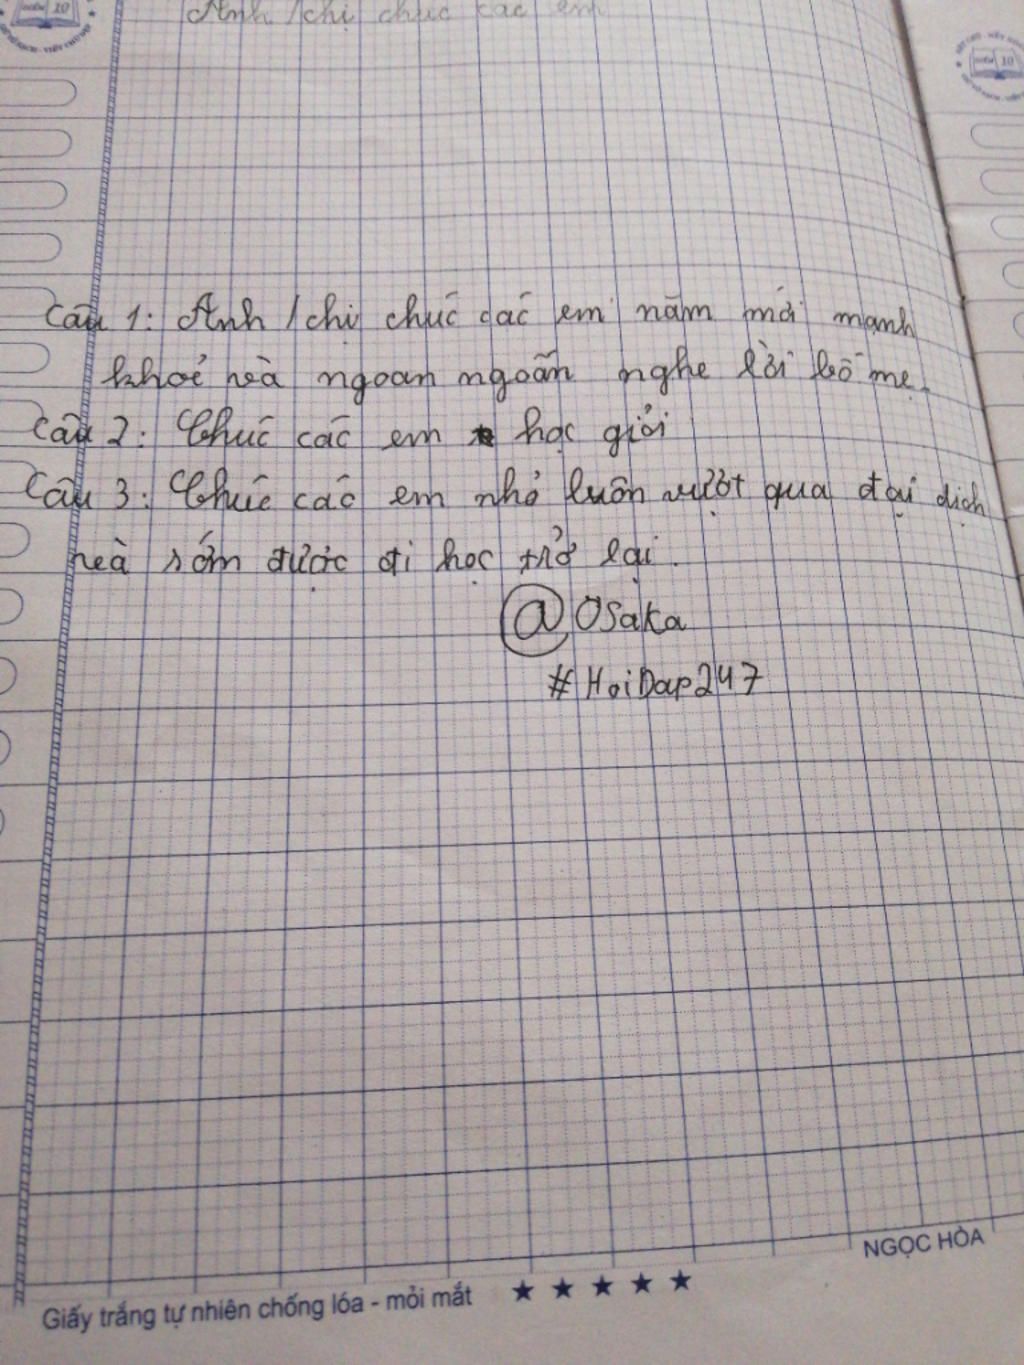 Anh/chị chúc các em
10
10
Câu 1: Anh/chị chúc các em năm mới mạnh
khoẻ và ngoan ngoãn nghe lời bố mẹ.
Câu 2: Chúc các em học giỏi
Câu 3: Chúc các em nhỏ luôn vượt qua đại dịch
và sớm được đi học trở lại.
@Osaka
#HoiDap247
NGỌC HÒA
Giấy trắng tự nhiên chống lóa - mỏi mắt ★ ★ ★ ★ ★